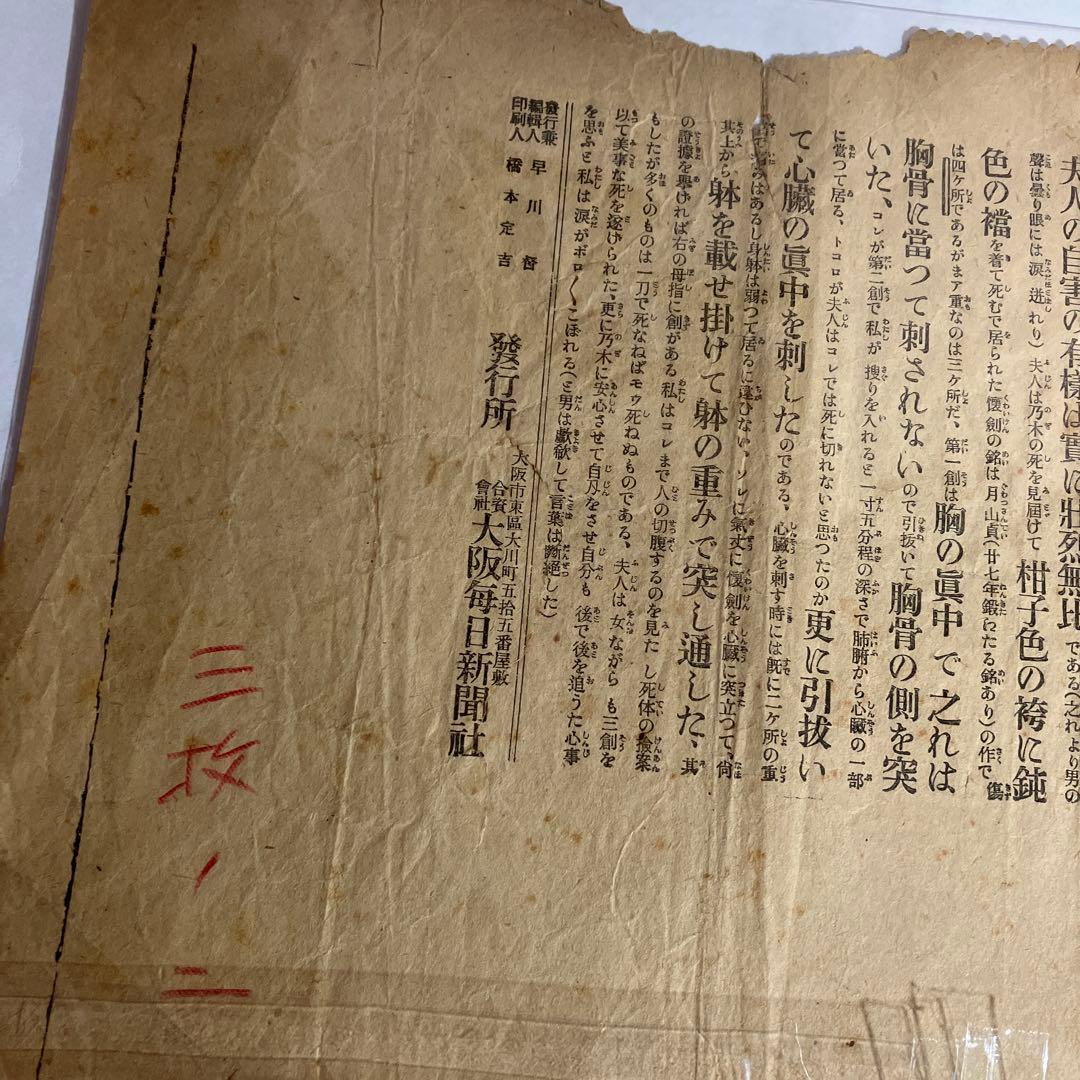 夫人の自害の有樣は實に壯烈無比である(之れより男の
聲は曇り眼には涙迸れり)夫人は乃木の死を見屆けて柑子色の袴に鈍
色の襠を着て死むで居られた懷劍の銘は月山貞(廿七年鍛にたる銘あり)の作で傷
は四ケ所であるがまア重なのは三ケ所だ、第一創は胸の眞中で之れは
胸骨に當つて刺されないので引拔いて胸骨の側を突
いた、コレが第二創で私が搜りを入れると一寸五分程の深さで肺腑から心臟の一部
に當つて居る、トコロが夫人はコレでは死に切れないと思つたのか更に引拔い
て心臟の眞中を刺したのである、心臟を刺す時には旣に二ケ所の重
はあるし身躰は弱つて居るに違ひない、ソレに氣丈に懷劍を心臟に突立つて、尙
其上から躰を載せ掛けて躰の重みで突し通した、其
の證據を擧ければ右の母指に創がある私はコレまで人の切腹するのを見たし死体の撿案
もしたが多くのものは一刀で死なねばモウ死ねぬものである、夫人は女ながらも三創を
以て美事な死を遂げられた、更に乃木に安心させて自刄をさせ自分も後で後を追うた心事
を思ふと私は涙がボロ〱こほれる(と男は歔欷して言葉は斷絕した)
發行兼編輯人 早川督
印刷人 橋本定吉
發行所 大阪市東區大川町五拾五番屋敷
合資會社大阪每日新聞社
三枚ノ二